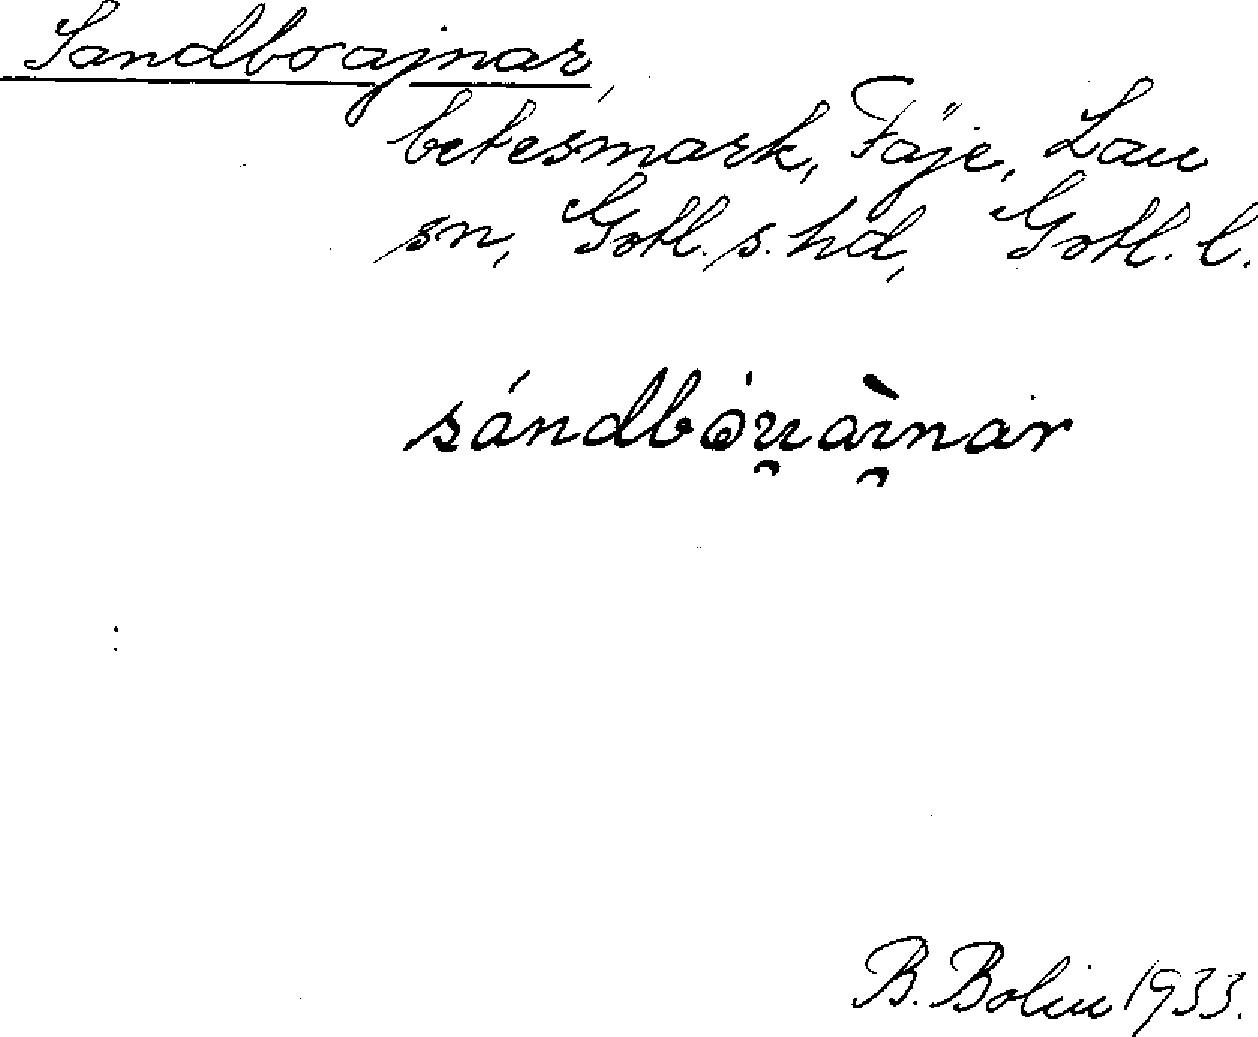 Sandboajnar,
betesmark, Fäje, Lau
sn, Gotl. s. hd, Gotl. l.
sándbɷ́u̯àɪ̯nar
B. Bolin 1933.